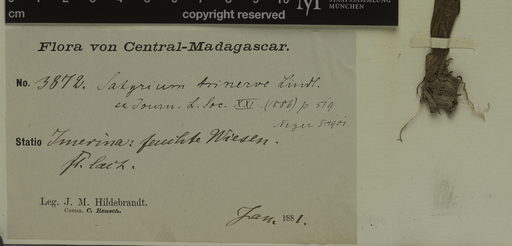 0 1 2 3 4 5 6 7 8 9 10
cm
copyright reserved
M STAATSSAMMLUNG
MÜNCHEN
Flora von Central-Madagascar.
No. 3872. Satyrium trinerve Lindl.
ex Journ. L. Soc. XXI. (1886) p. 519
Statio Imerina: feuchte Wiesen.
fl. lact.
Leg. J. M. Hildebrandt.
Comm. C. Rensch.
Jan. 1881.